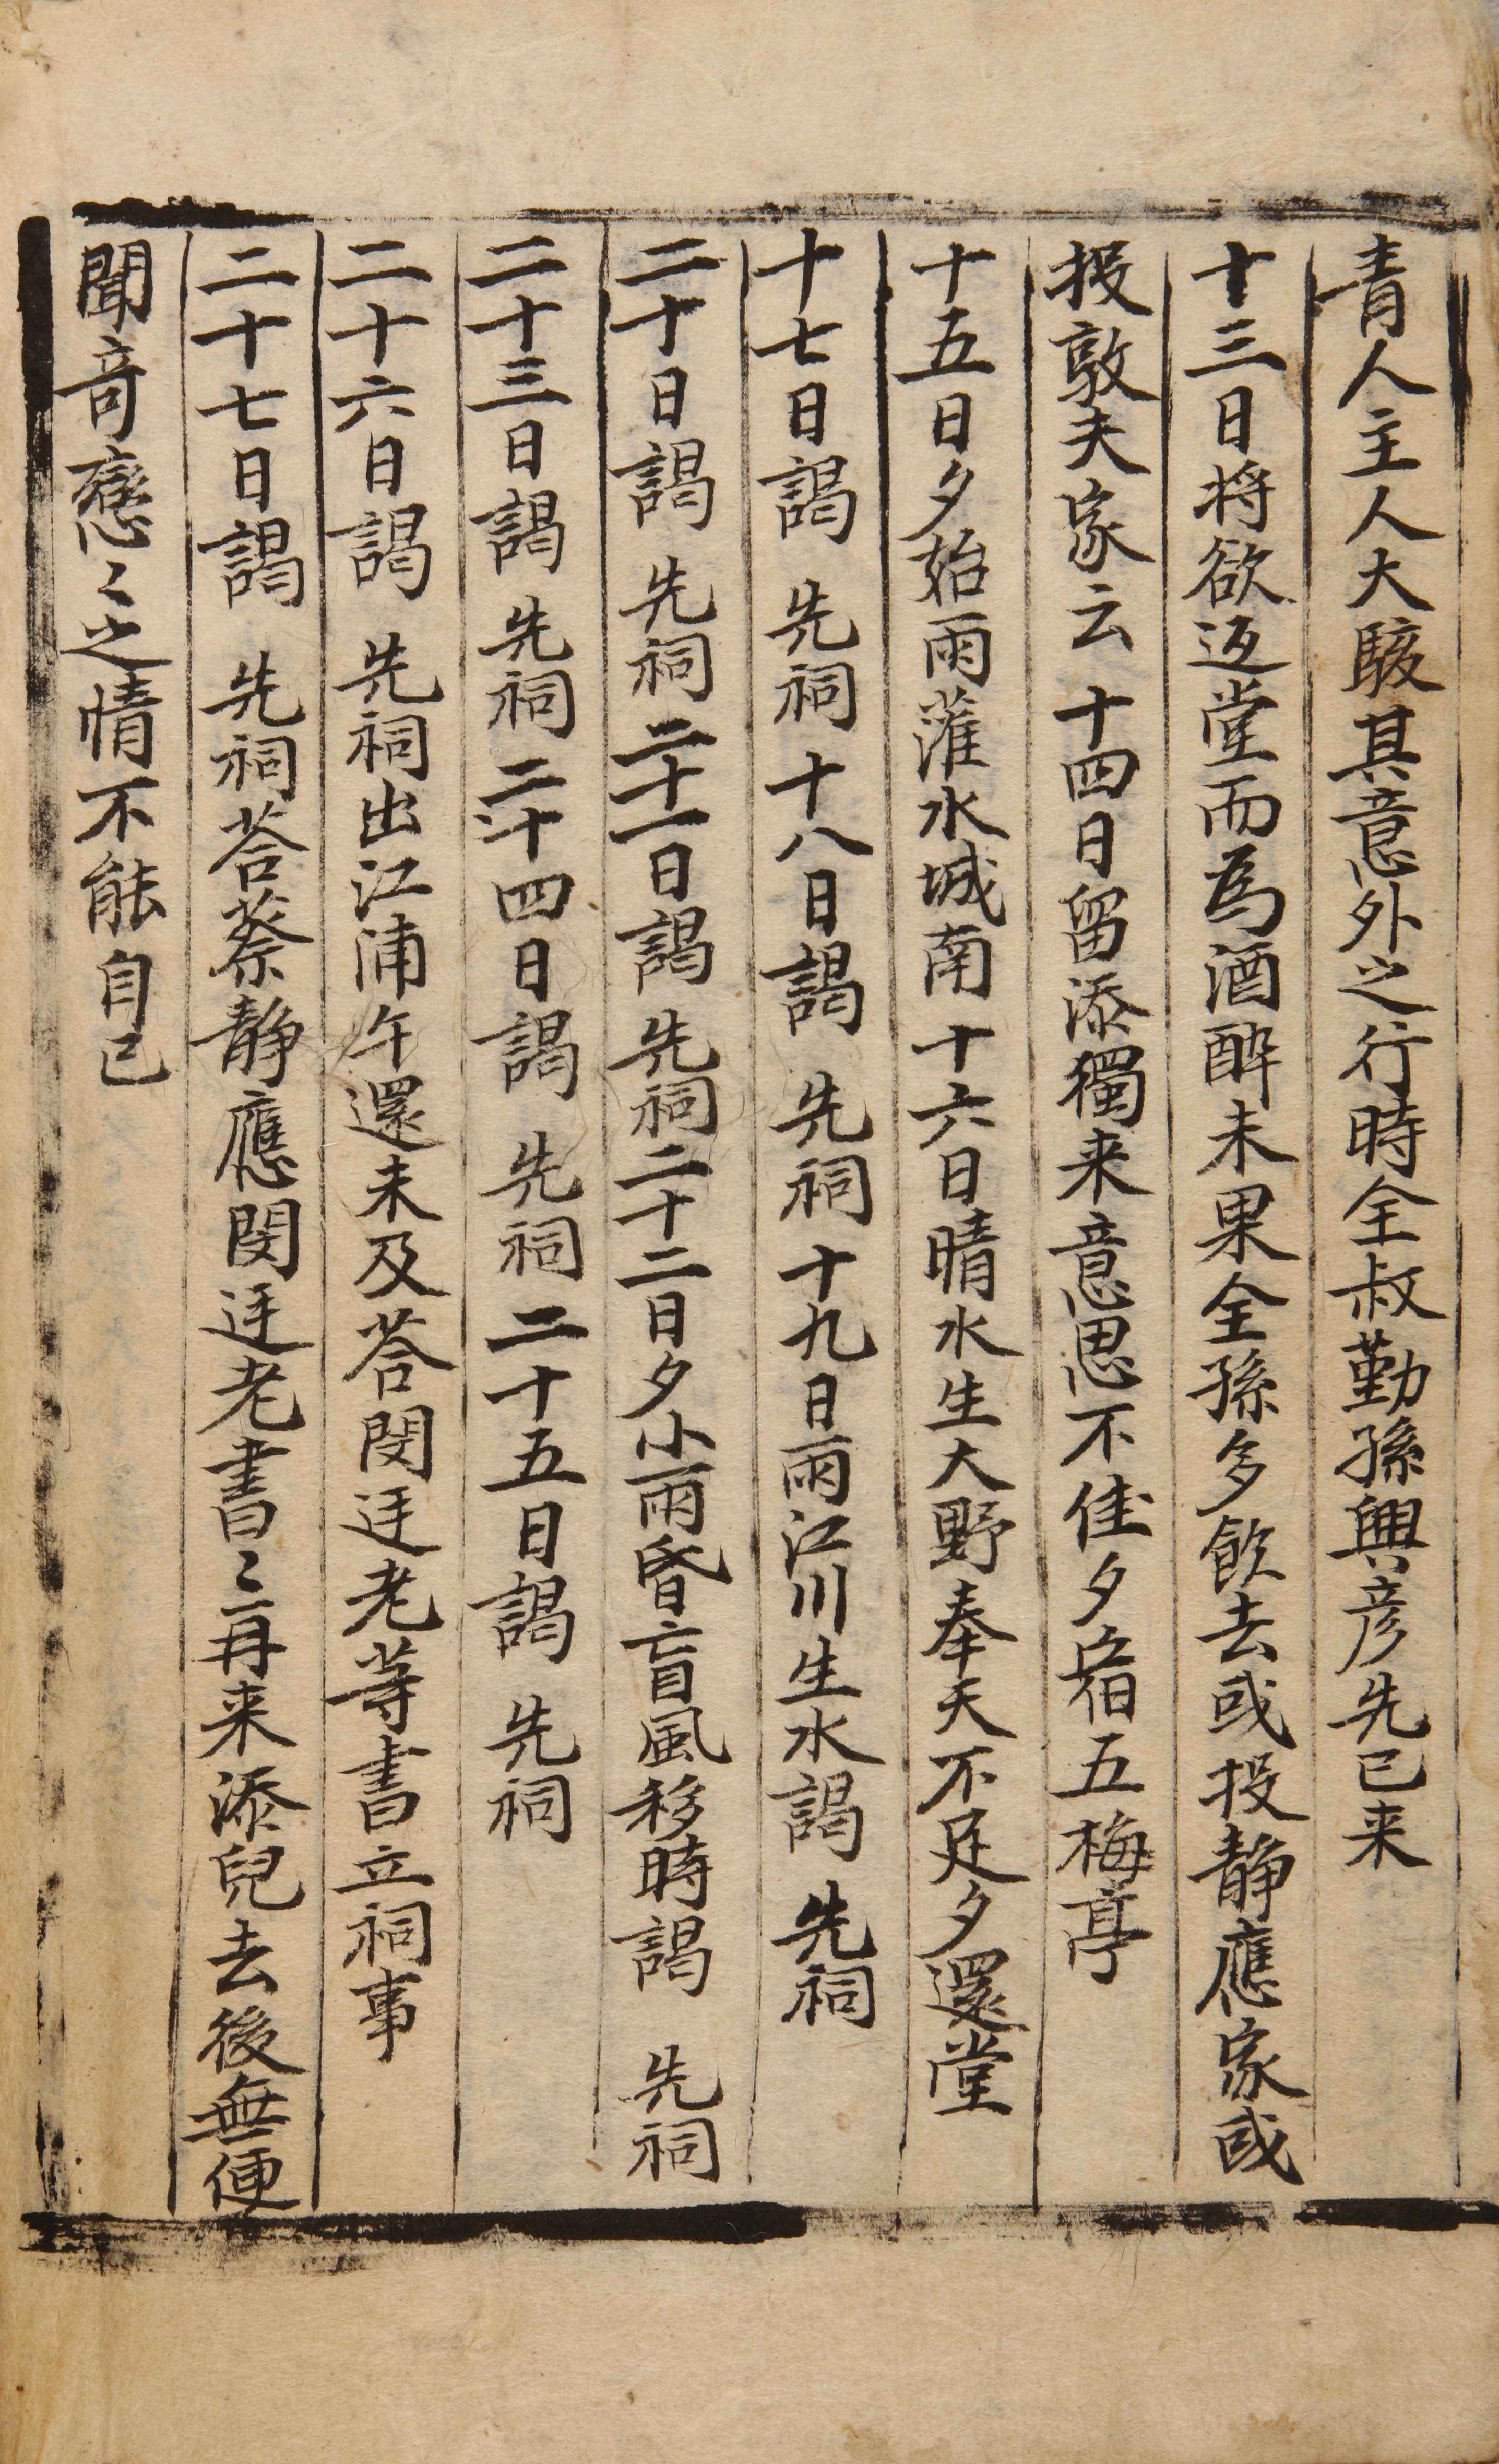 青人主人大駭其意外之行時全叔勤孫興彦先已来
十三日将欲返堂而為酒醉未果全孫多飮去或投静應家或
投敦夫家云 十四日留添獨来意思不佳夕宿五梅亭
十五日夕始雨漼水城南 十六日晴水生大野奉天不足夕還堂
十七日謁 先祠 十八日謁 先祠 十九日雨江川生水謁 先祠
二十日謁 先祠 二十一日謁 先祠 二十二日夕小雨昏盲風移時謁 先祠
二十三日謁 先祠 二十四日謁 先祠 二十五日謁 先祠
二十六日謁 先祠出江浦午還未及答閔迋老等書立祠事
二十七日謁 先祠答蔡静應閔迋老書〻再来添兒去後無便
聞音戀〻之情不能自已